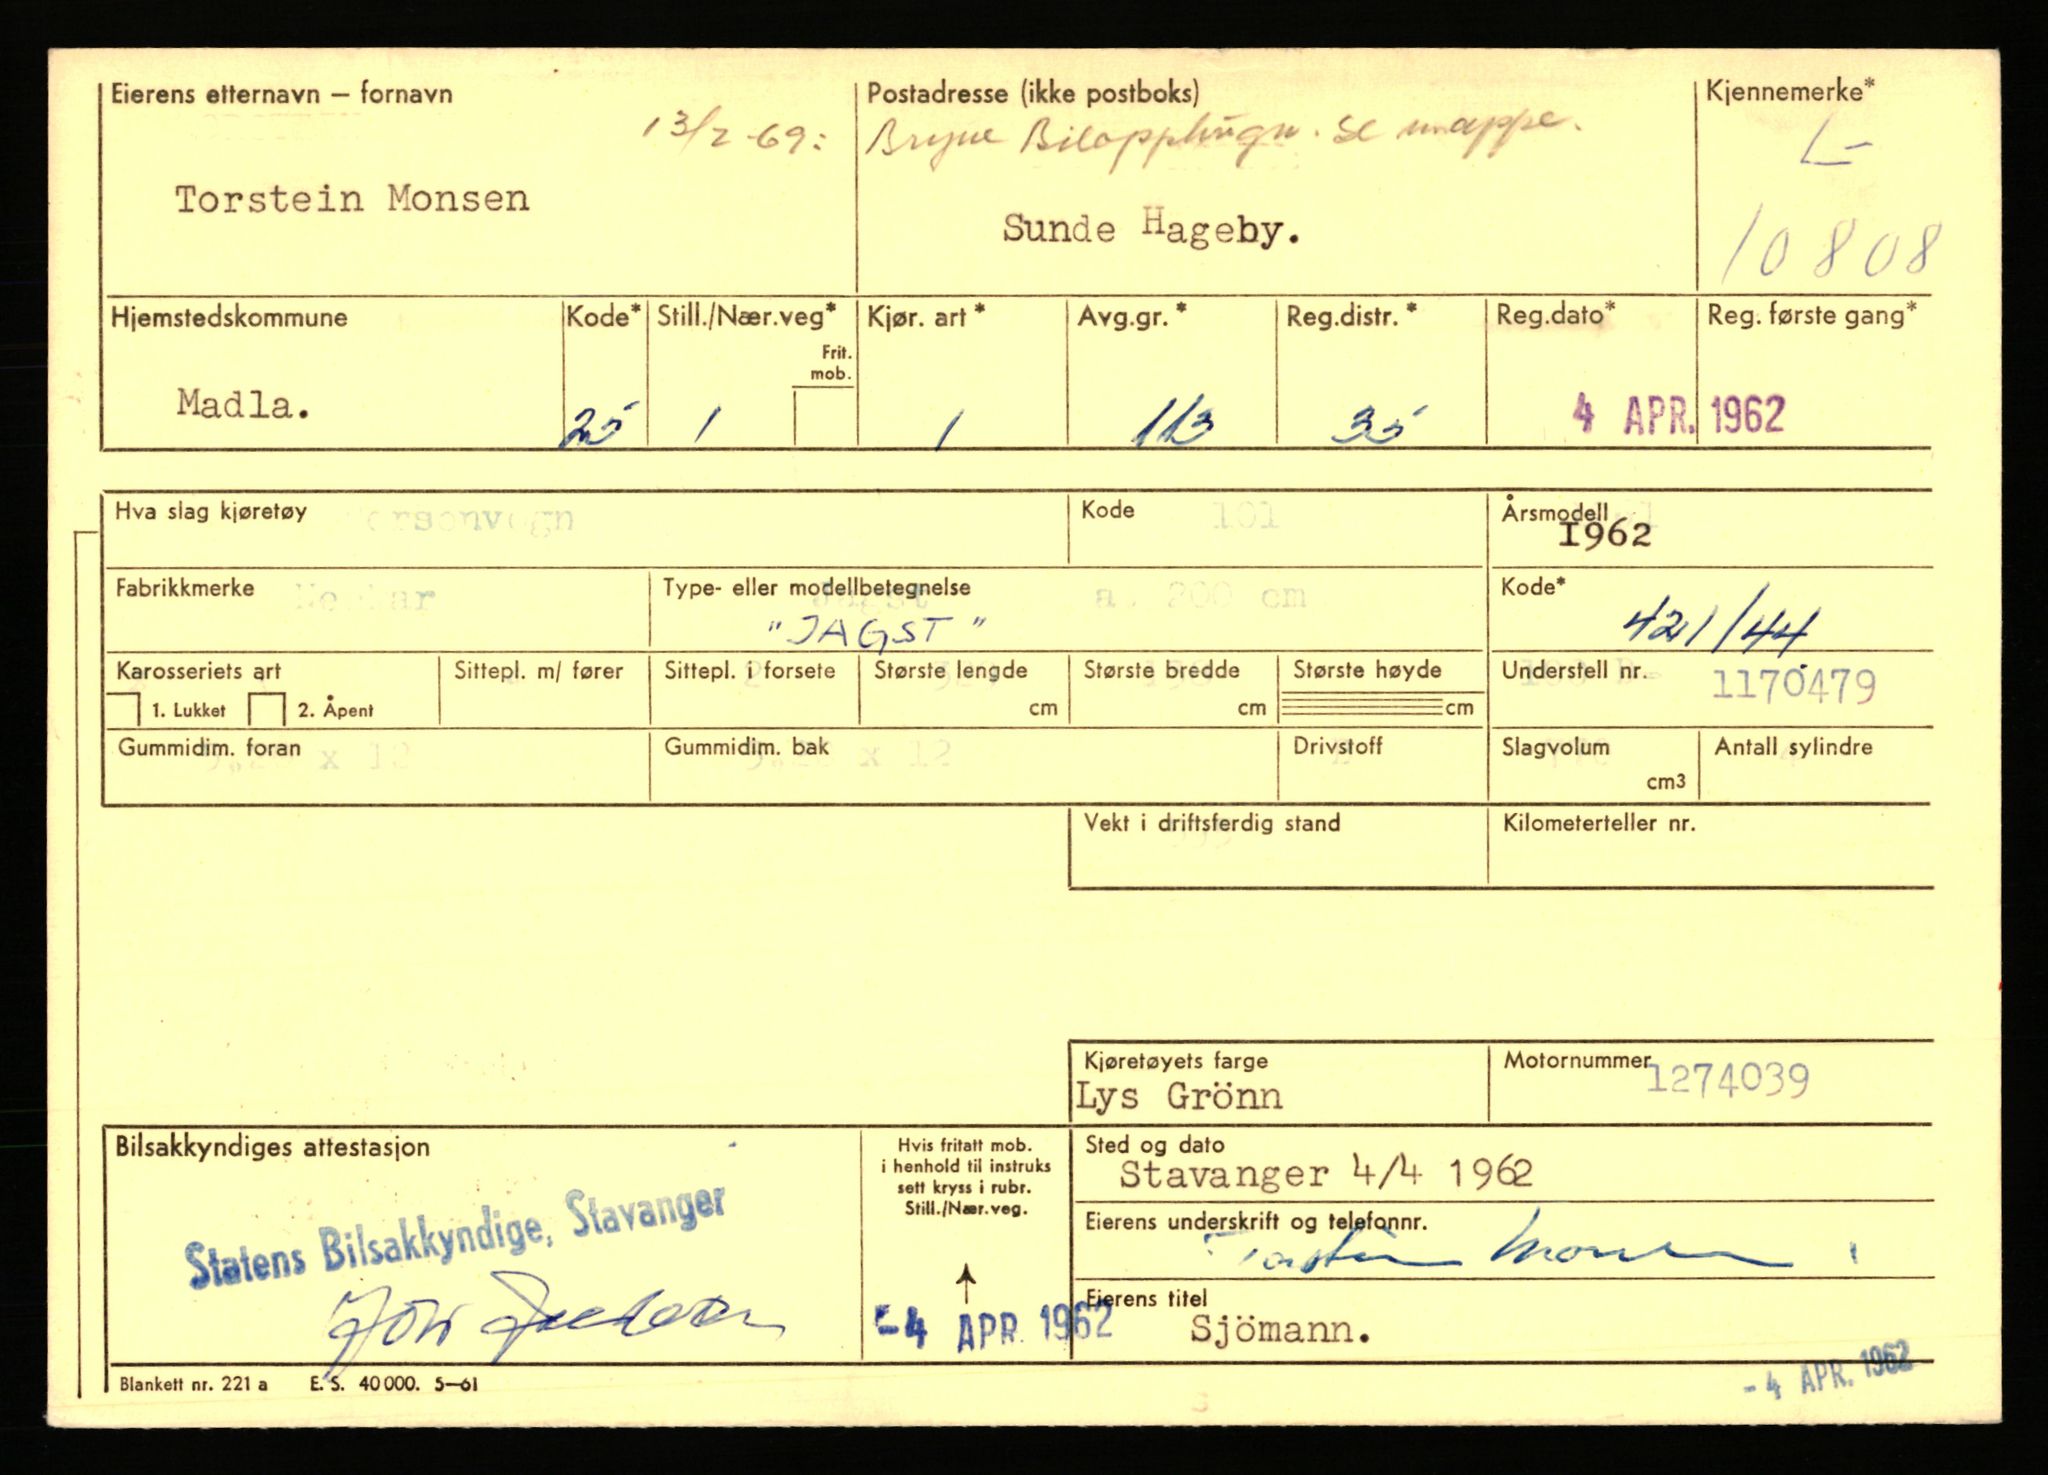 Eierens etternavn — fornavn
Postadresse (ikke postboks)
Kjennemerke*
13/2-69:
Bryne Bilopphugn. se mappe.
L-
Torstein Monsen
Sunde Hageby.
10808
Hjemstedskommune
Kode*
Still./Nær.veg*
Kjør. art *
Avg.gr. *
Reg.distr. *
Reg.dato*
Reg. første gang*
Frit.
mob.
Madla.
25
1
1
113
35
4 APR. 1962
Hva slag kjøretøy
Personvogn
Kode
101
Årsmodell
1962
Fabrikkmerke
Neckar
Type- eller modellbetegnelse
Jagst a. 200 cm
"JAGST"
Kode*
421/44
Karosseriets art
1. Lukket
2. Åpent
Sittepl. m/ fører
Sittepl. i forsete
2
Største lengde
cm
Største bredde
cm
Største høyde
cm
Understell nr.
1170479
Gummidim. foran
5.20 x 12
Gummidim. bak
5.20 x 12
Drivstoff
Slagvolum
cm3
Antall sylindre
4
Vekt i driftsferdig stand
Kilometerteller nr.
Kjøretøyets farge
Lys Grönn
Motornummer
1274039
Bilsakkyndiges attestasjon
Statens Bilsakkyndige, Stavanger
Hvis fritatt mob.
i henhold til instruks
sett kryss i rubr.
Still./Nær.veg.
-4 APR. 1962
Sted og dato
Stavanger 4/4 1962
Eierens underskrift og telefonnr.
Torstein Monsen
Eierens titel
Sjömann.
Blankett nr. 221 a E. S. 40 000. 5—61
-4 APR. 1962